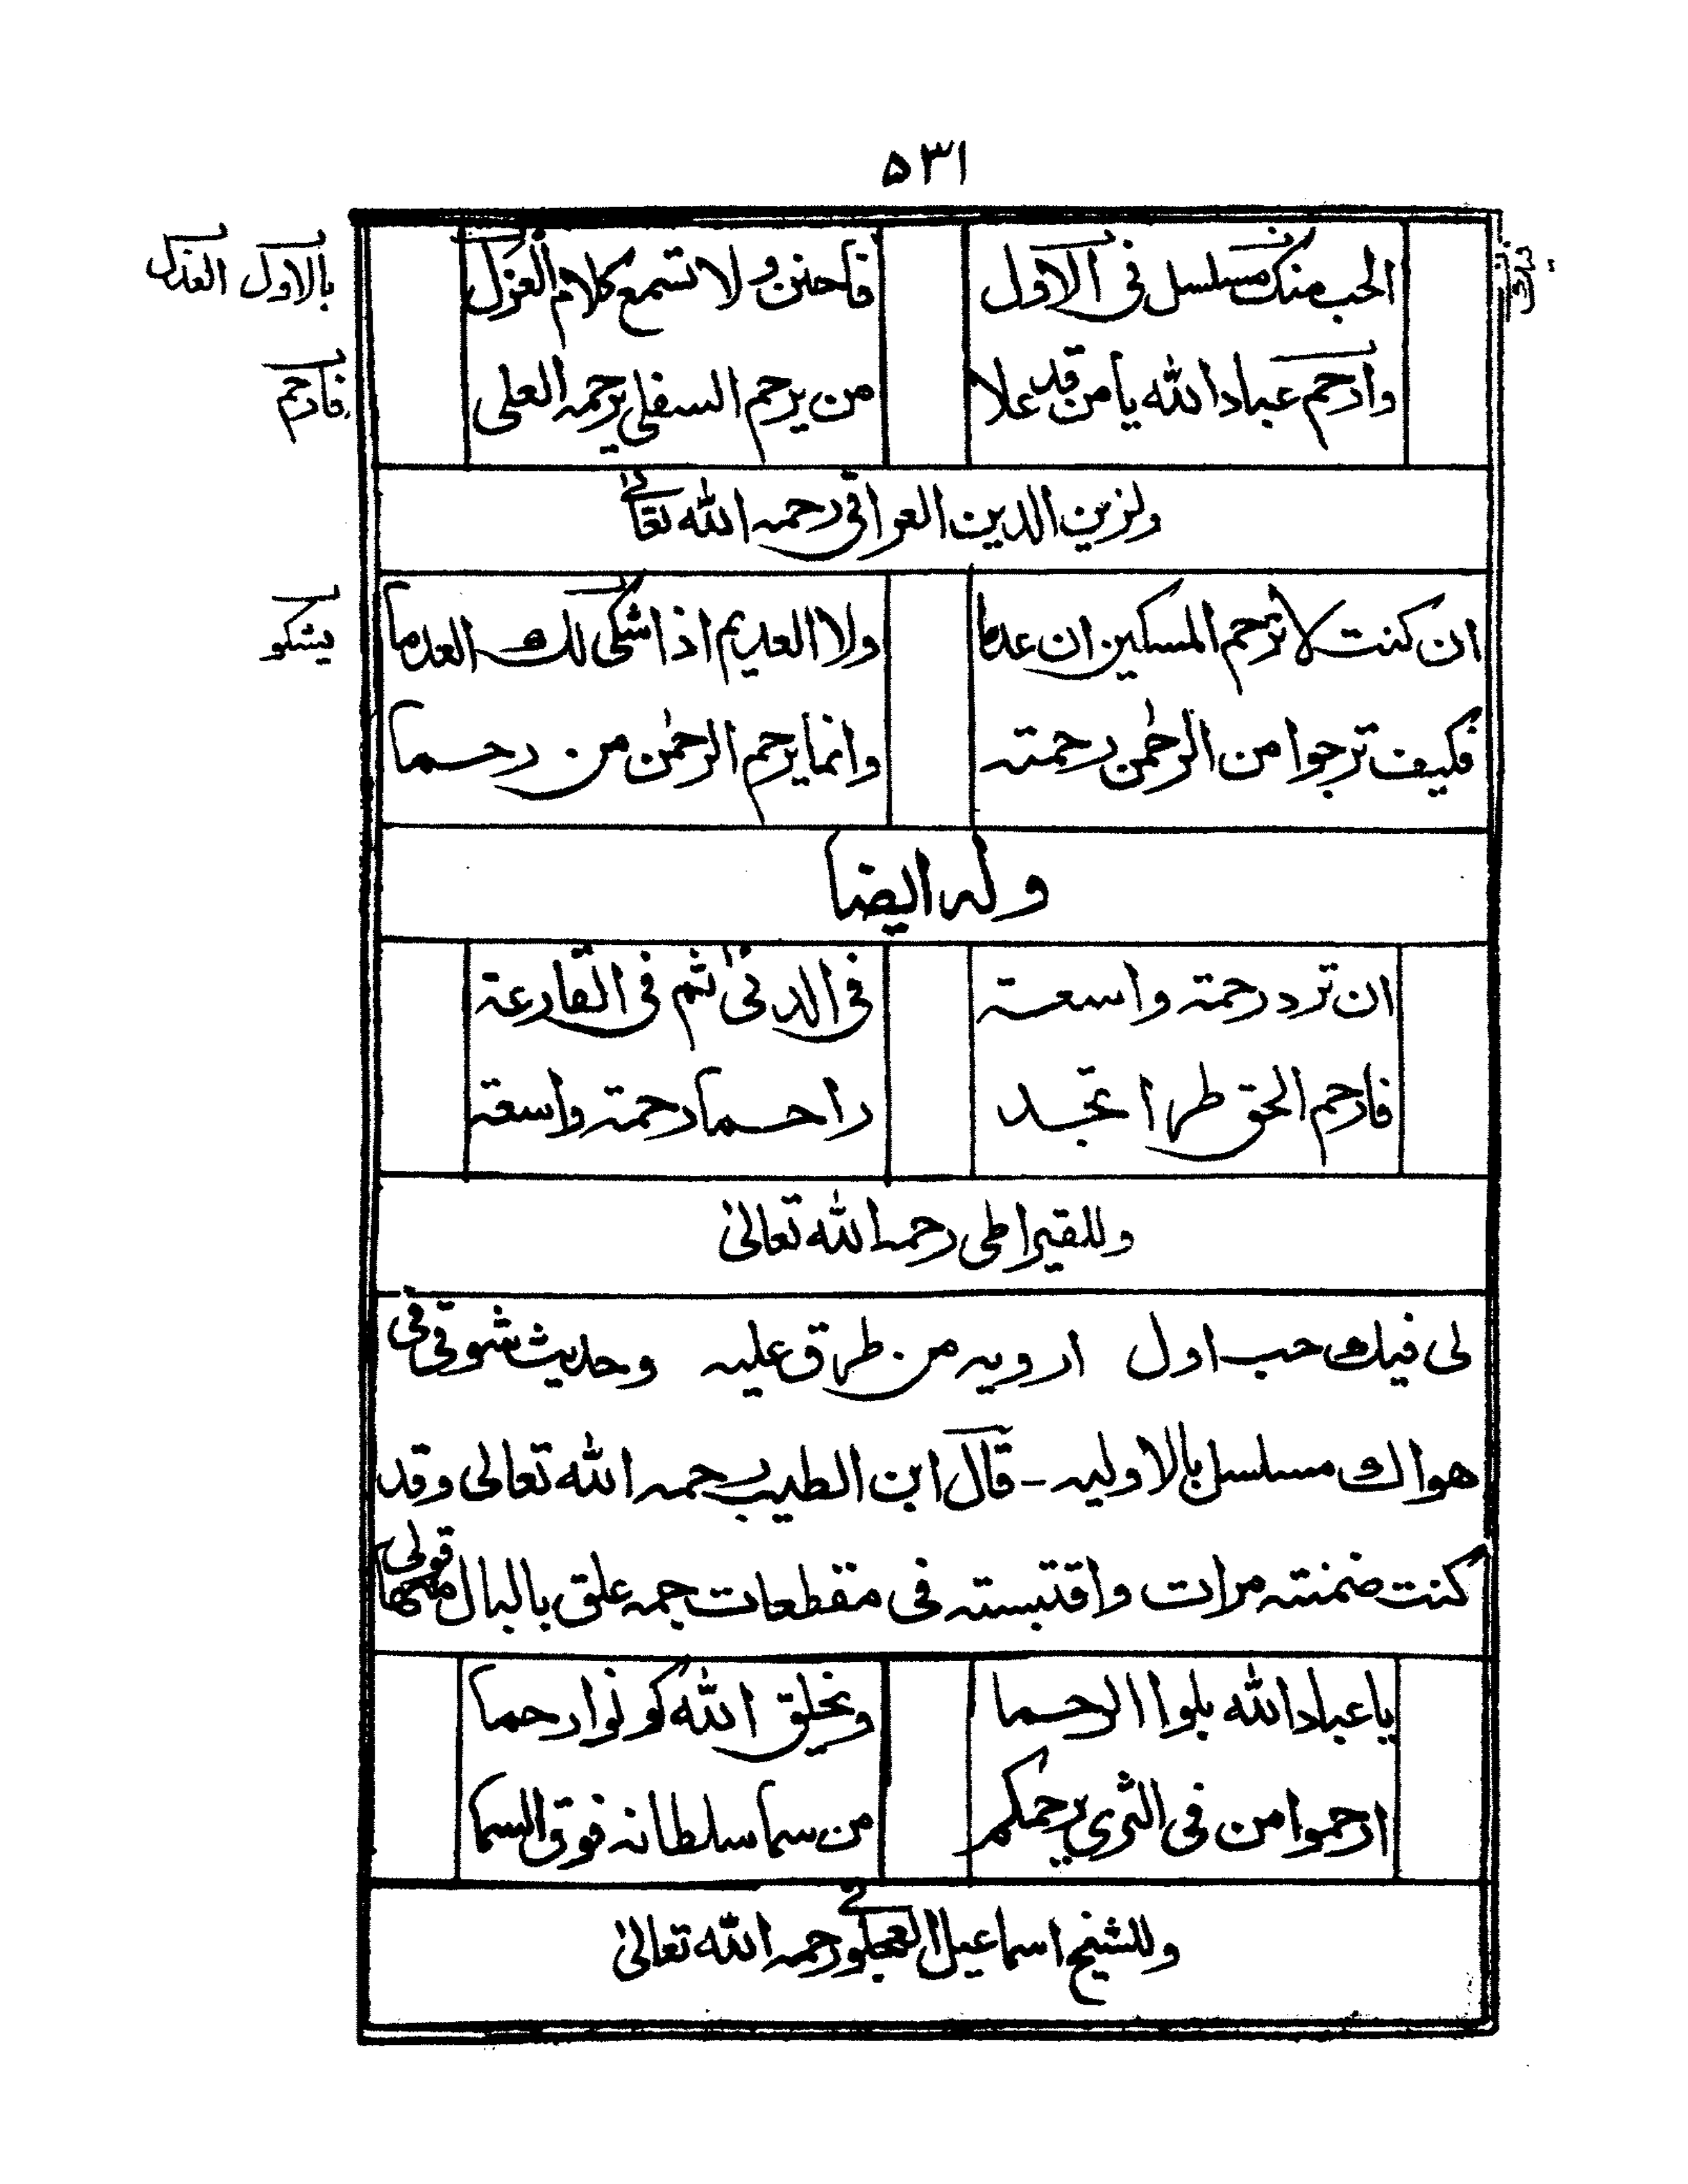 ٥٣١
الحب منك مسلسل فى الاول فاحنن ولا تسمع كلام العزل
بالاول العذل
وارحم عباد الله يا من قد علا من يرحم السفلى يرحمه العلى
فارحم
ولزين الدين العراقى رحمه الله تعالى
ان كنت لا ترحم المسكين ان عدما ولا العديم اذا شكى لك العدما
يشكو
فكيف ترجوا من الرحمٰن رحمته وانما يرحم الرحمٰن من رحما
وله ايضا
ان ترد رحمة واسعة فى الدنىٰ ثم فى القارعة
فارحم الحق طرا تجد راحما رحمة واسعة
وللقيراطى رحمه الله تعالىٰ
لى فيك حب اول ارويه من طرق عليه وحديث شوقى فى
هواك مسلسل بالاوليه - قال ابن الطيب رحمه الله تعالى وقد
كنت ضمنته مرات واقتبسته فى مقطعات جمه علق بالبال منها قولى
يا عباد الله بلوا الرحما وبخلق الله كونوا رحما
ارحموا من فى الثرى يرحمكم من سما سلطانه فوق السما
وللشيخ اسماعيل العجلونى رحمه الله تعالىٰ